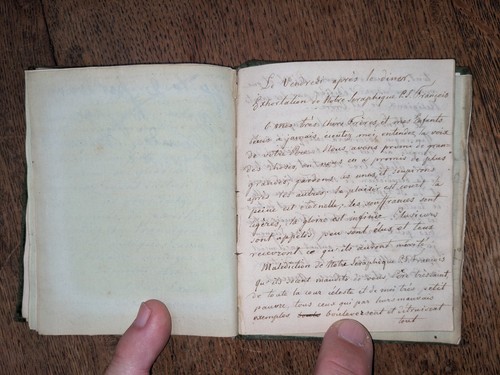 Le Vendredi après le diner.
Exhortation de Notre Seraphique P. S. François
O mes très chers frères et mes Enfants
bénis à jamais, écoutez moi, entendez la voix
de votre Père. Nous avons promis de gran
des choses, on nous en a promis de plus
grandes, gardons les unes et soupirons
après les autres. Le plaisir est court, la
peine est éternelle, les souffrances sont
légères, la gloire est infinie. Plusieurs
sont appelés, peu sont élus, et tous
recevront ce qu'ils auront mérité.
Malediction de Notre Seraphique P. S. François
Qu'ils soient maudits de vous Père très saint
de toute la cour céleste et de moi très petit
pauvre, tous ceux qui par leurs mauvais
exemples bouleversent et detruisent
tout